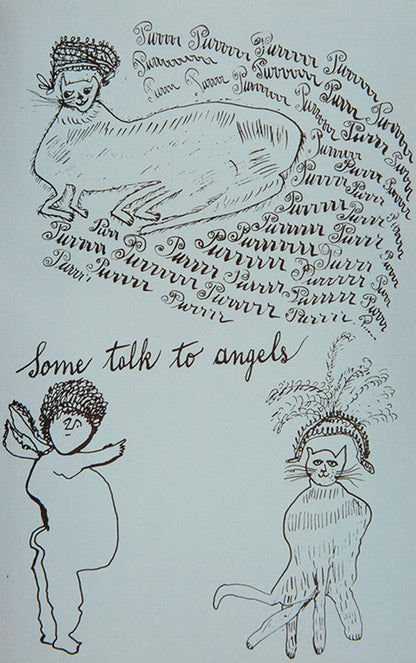 Purrrr Purrrrr Purrrrr Purrrrr
Purrrrrrrr Purrrrrr Purrrr Purrrr
Purrrr Purrrr Purrrrrr Purrrrr Purrrr Purrr
Purrrrr Purrrr Purrr
Purrrrr Purrrr Purrr
Purrrrrr Purrrr Purrr
Purr Purrrrrr Purrrr Purrr
Purrrr Purrr Purrrr Purrrrrrr Purrrr Purrr
Purrr! Purrrr Purrrrrrr Purrrr Purrrrrr Purrr
Purrrr! Purrrrrrr Purrrr P....
Some talk to angels